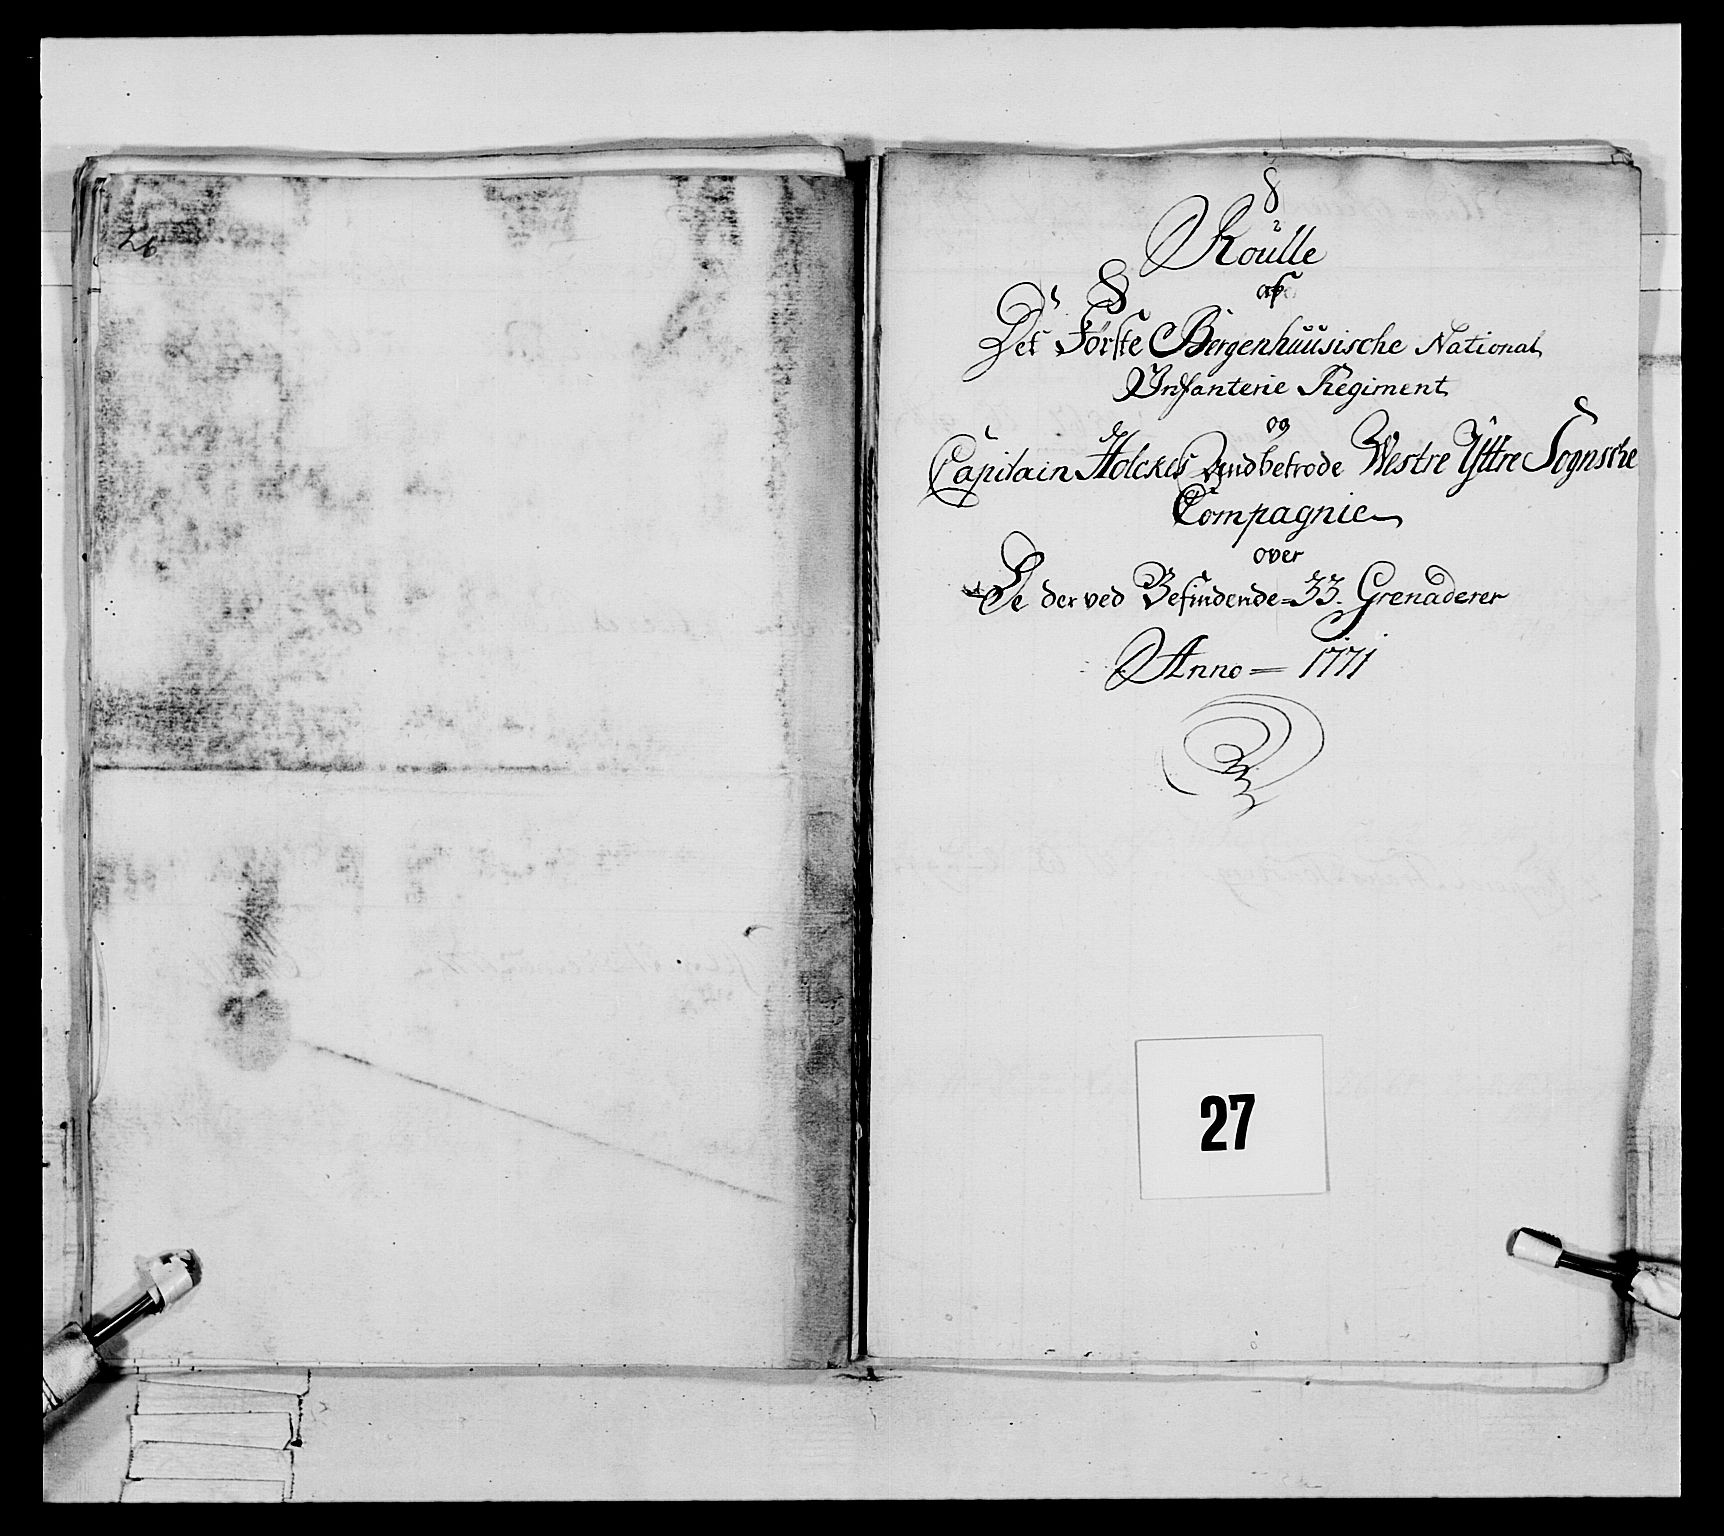 26
Roulle
af
Det Første Bergenhuusische National
Infanterie Regiment
og
Capitain Holckes Andbetrode Westre Yttre Sognsche
Compagnie
over
De der ved Befindende 33. Grenaderer
Anno = 1771
27